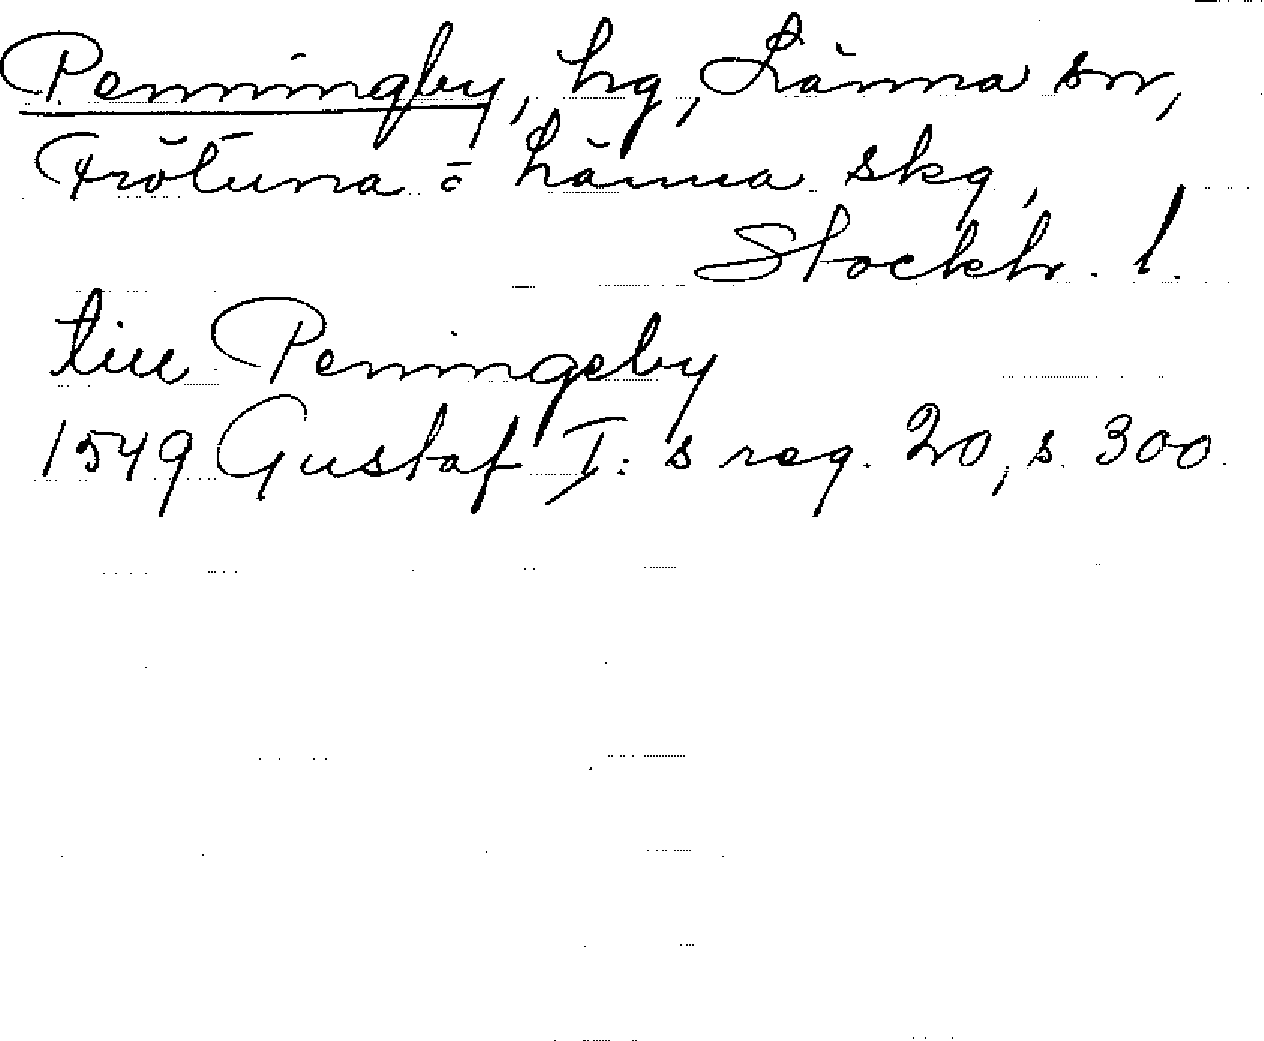 Penningby, hg, Länna sn,
Frötuna o Länna skg,
Stockh. l.
till Peningeby
1549 Gustaf I:s reg. 20, s 300.